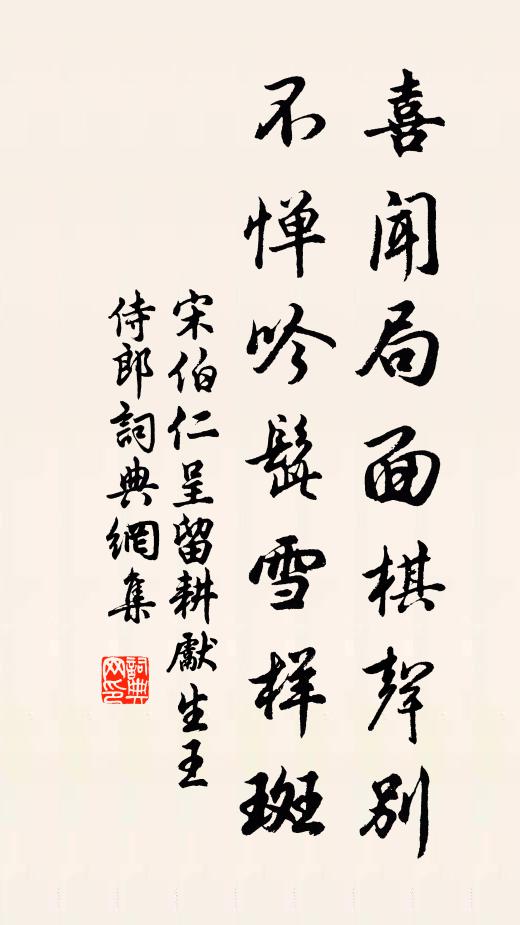 喜闻局面棋聲别
不惮吟髭雪样斑
宋伯仁呈留耕獻生王
侍郎詞典網集
詞典网印